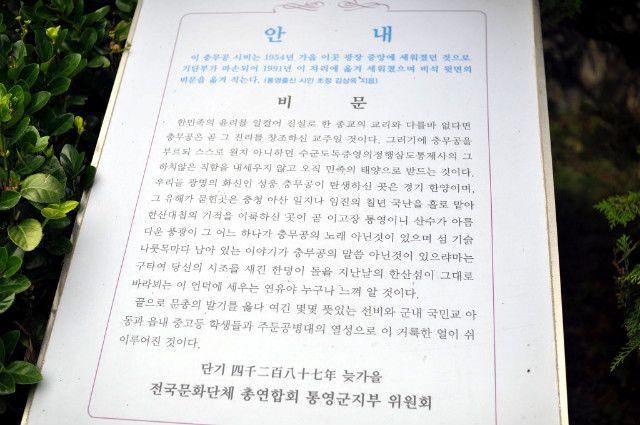 안 내
이 충무공 시비는 1954년 가을 이곳 광장 중앙에 세워졌던 것으로
기단부가 파손되어 1991년 이 자리에 옮겨 세워졌으며 비석 뒷면의
비문을 옮겨 적는다. (통영출신 시인 초정 김상옥 지음)
비 문
한민족의 윤리를 일컬어 진실로 한 종교의 교리와 다를바 없다면
충무공은 곧 그 진리를 창조하신 교주일 것이다. 그러기에 충무공을
부르되 스스로 원치 아니하던 수군도독증영의정행삼도통제사의 그
하치않은 직함을 내세우지 않고 오직 민족의 태양으로 받드는 것이다.
우리들 광명의 화신인 성웅 충무공이 탄생하신 곳은 경기 한양이며,
그 유해가 묻힌곳은 충청 아산 일지나 임진의 칠년 국난을 홀로 맡아
한산대첩의 기적을 이룩하신 곳이 곧 이고장 통영이니 산수가 아름
다운 풍광이 그 어느 하나가 충무공의 노래 아닌것이 있으며 섬 기슭
나룻목마다 남아 있는 이야기가 충무공의 말씀 아닌것이 있으랴마는
구타여 당신의 시조를 새긴 한덩이 돌을 지난날의 한산섬이 그대로
바라뵈는 이 언덕에 세우는 연유야 누구나 느껴 알 것이다.
끝으로 문총의 발기를 옳다 여긴 몇몇 뜻있는 선비와 군내 국민교 아
동과 읍내 중고등 학생들과 주둔공병대의 열성으로 이 거룩한 얼이 쉬
이루어진 것이다.
단기 四千二百八十七年 늦가을
전국문화단체 총연합회 통영군지부 위원회